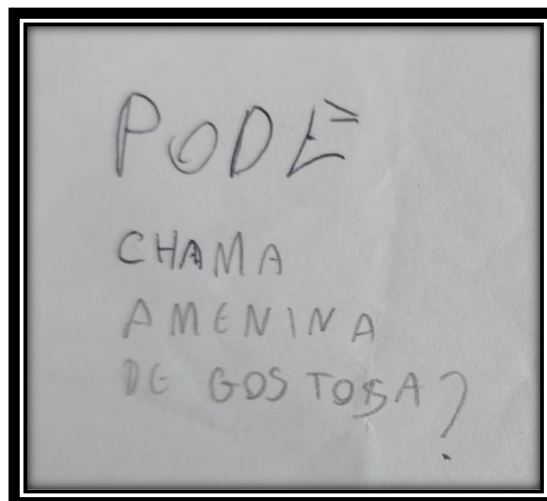 PODE
CHAMA
AMENINA
DE GOSTOSA?